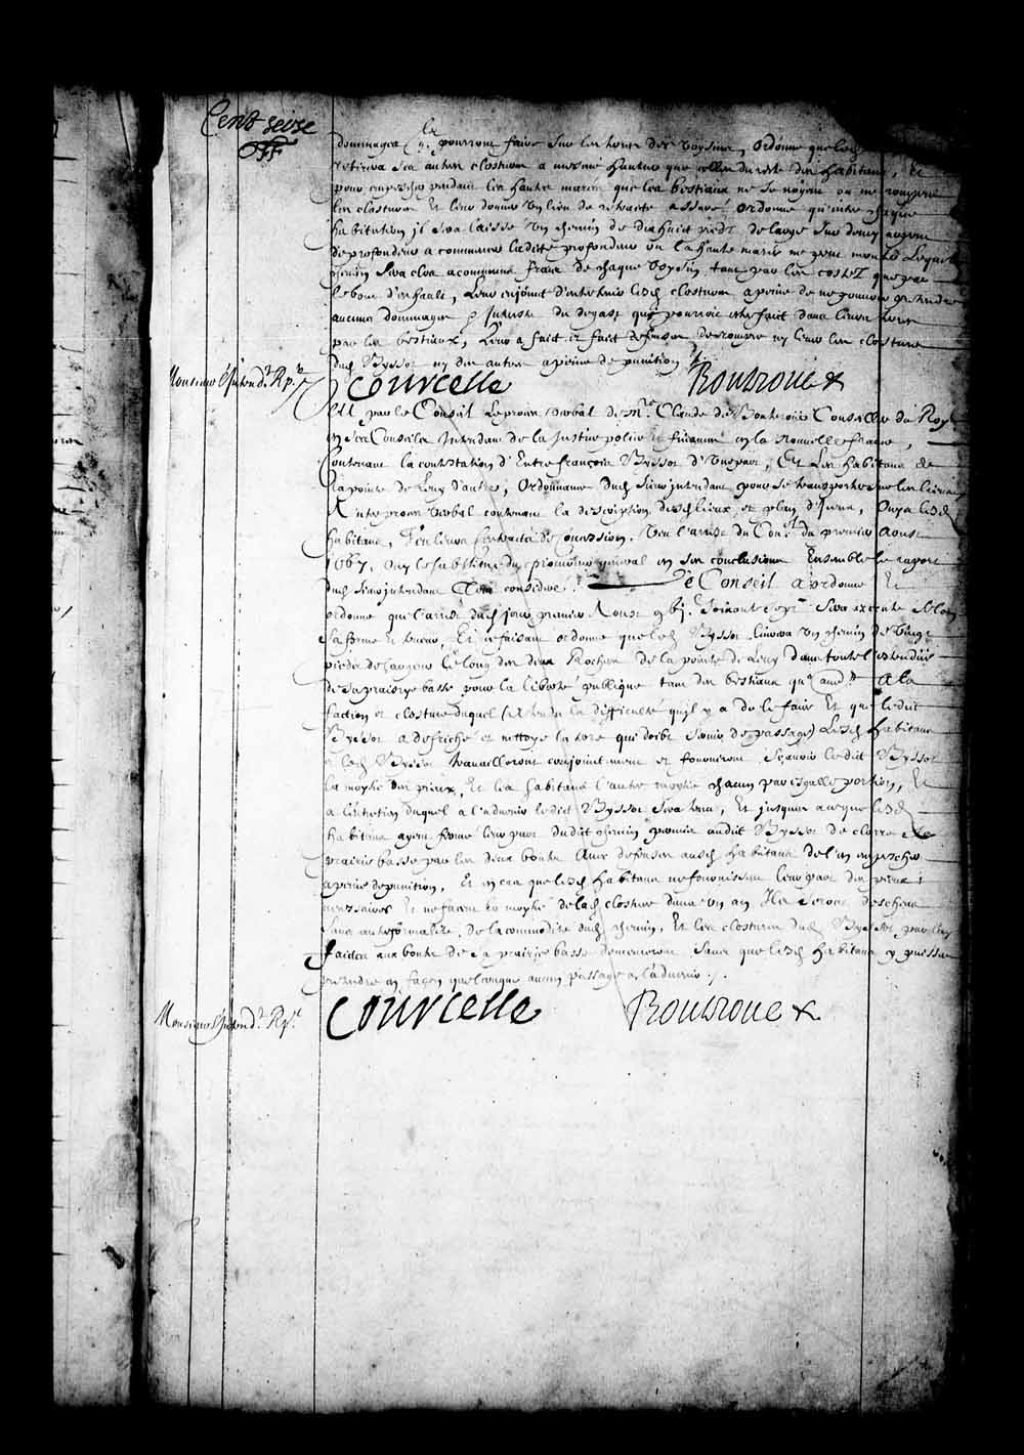 Cent seize
dommages qu'ilz pourront faire sur les terres des voysins, ordonne que led
retirera ses autres clostures a mesme hauteur que celles du reste des habitans, Et
pour empescher pendant les hautes marées que les bestiaux ne se noyent ou ne rompent
les clostures Et leur donner un lieu de retraite assuré ordonne qu'entre chaque
habitation il sera laissé un chemin de dix huict pieds de large sur demy arpent
de profondeur a commencer ladite profondeur ou la haute marée ne peut monter Lequel
chemin sera clos a communs fraix de chaque voysin tant par les costez que par
le bout d'en hault, Leur enjoinct d'entretenir lesd clostures a peine de ne pouvoir pretendre
aucuns dommages du degast qui pourroit estre faict dans leurs terres
par les bestiaux, Leur a faict et faict defenses de rompre ny leurs les clostures
dud Byssot ny des autres a peine de punition
Monsieur l'Intend.t Rp.r
Courcelle Boutroue
Veu par le Conseil Le procez verbal de M.re Claude de Boutroue Conseiller du Roy
en ses Conseils Intendant de la Justice police et finances en la Nouvelle france,
Contenant la contestation d'Entre françois Byssot d'Une part, Et Les habitans de
la pointe de Levy d'autre, Ordonnance dud sieur intendant pour se transporter sur les lieux
Autre procez verbal contenant la description desd lieux et plan d'iceux, Ouy lesd
habitans, Veu leurs contracts de concession, Veu l'arrest du Con.el du premier Aoust
1667, Ouy le substitut du procureur general en ses conclusions Ensemble le raport
dud sieur intendant Tout consideré Le Conseil a ordonné Et
ordonne que l'arrest dud jour premier Aoust gbj.c soixante sept sera executé selon
sa forme et teneur, Et ce faisant ordonne que led Byssot livrera un chemin de vingt
pieds de largeur le long des deux Rochers de la pointe de Levy dans toute l'estendue
de sa prairye basse pour la liberté publique tant des bestiaux qu'autres A la
faction et closture duquel (attendu la difficulté qu'il y a de le faire Et que ledit
Byssot a defriché et nettoyé la terre qui doibt servir de passage) Lesd habitans
et led Byssot travailleront conjoinctement et fourniront sçavoir ledit Byssot
la moytié des pieux, Et les habitans l'autre moytié chacun par esgalle portion, Et
a l'entretien duquel a l'advenir ledit Byssot sera tenu, Et jusques a ce que lesd
habitans ayent fermé leur part dudit chemin permis audit Byssot de clorre sa
prairie basse par les deux bouts Avec defenses ausd habitans de l'en empescher
a peine de punition, Et en cas que lesd habitans ne fournissent leur part des pieux
necessaires Et ne facent la moytié de lad closture dans un an Ilz seront descheus
sans autre formalité, de la commodité dud chemin, Et les clostures dud Byssot
faictes aux bouts de sa prairie basse demeureront sans que lesd habitans y puissent
pretendre en façon quelconque aucun passage a l'advenir.
Monsieur l'Intend.t Rp.r
Courcelle Boutroue